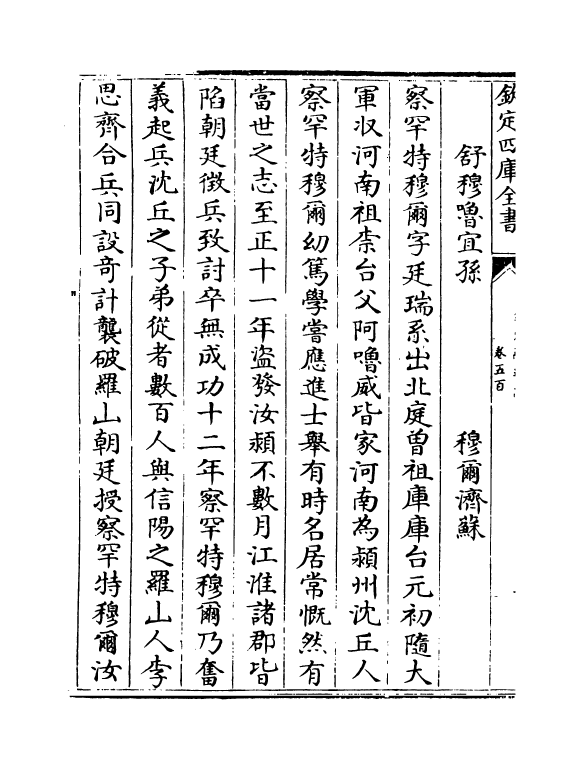 欽定四庫全書
卷五百
舒穆嚕宜孫 穆爾濟蘇
察罕特穆爾字廷瑞系出北庭曽祖庫庫台元初隨大
軍收河南祖柰台父阿嚕威皆家河南為潁州沈丘人
察罕特穆爾幼篤學嘗應進士舉有時名居常慨然有
當世之志至正十一年盗發汝潁不數月江淮諸郡皆
陷朝廷徴兵致討卒無成功十二年察罕特穆爾乃奮
義起兵沈丘之子弟從者數百人與信陽之羅山人李
思齊合兵同設竒計襲破羅山朝廷授察罕特穆爾汝